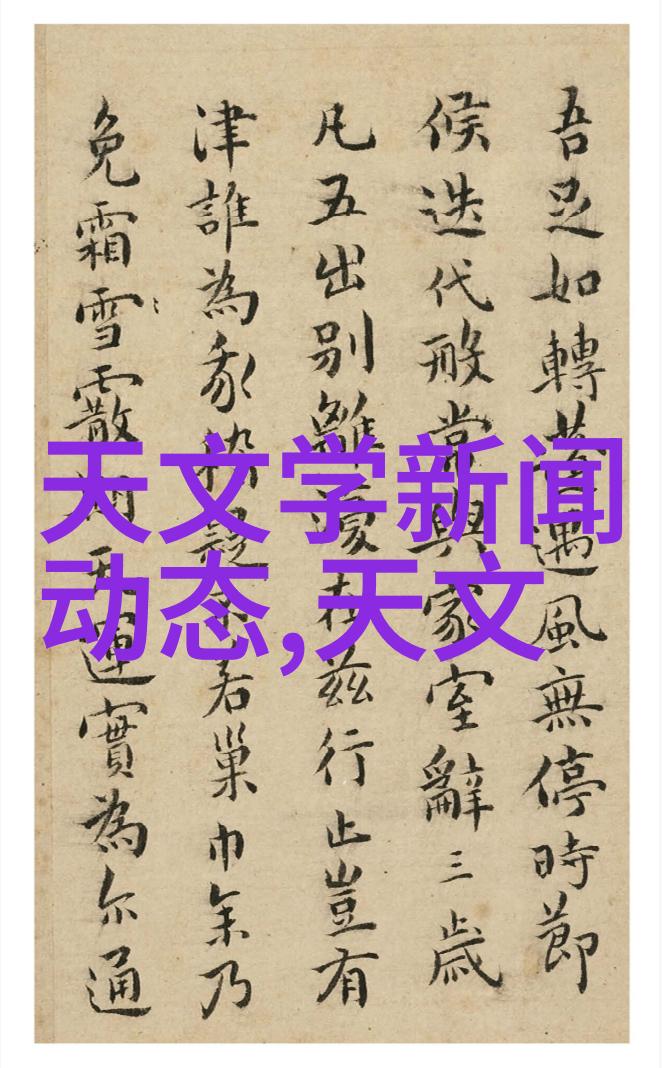 吾足如轉遇風無停時節
候迭代殷常與家室辭三歲
凡五出別離復在茲行止豈有
津誰為疑若巢巾余乃
免霜雪霰天運實為尔通
天文学新闻
动态,天文